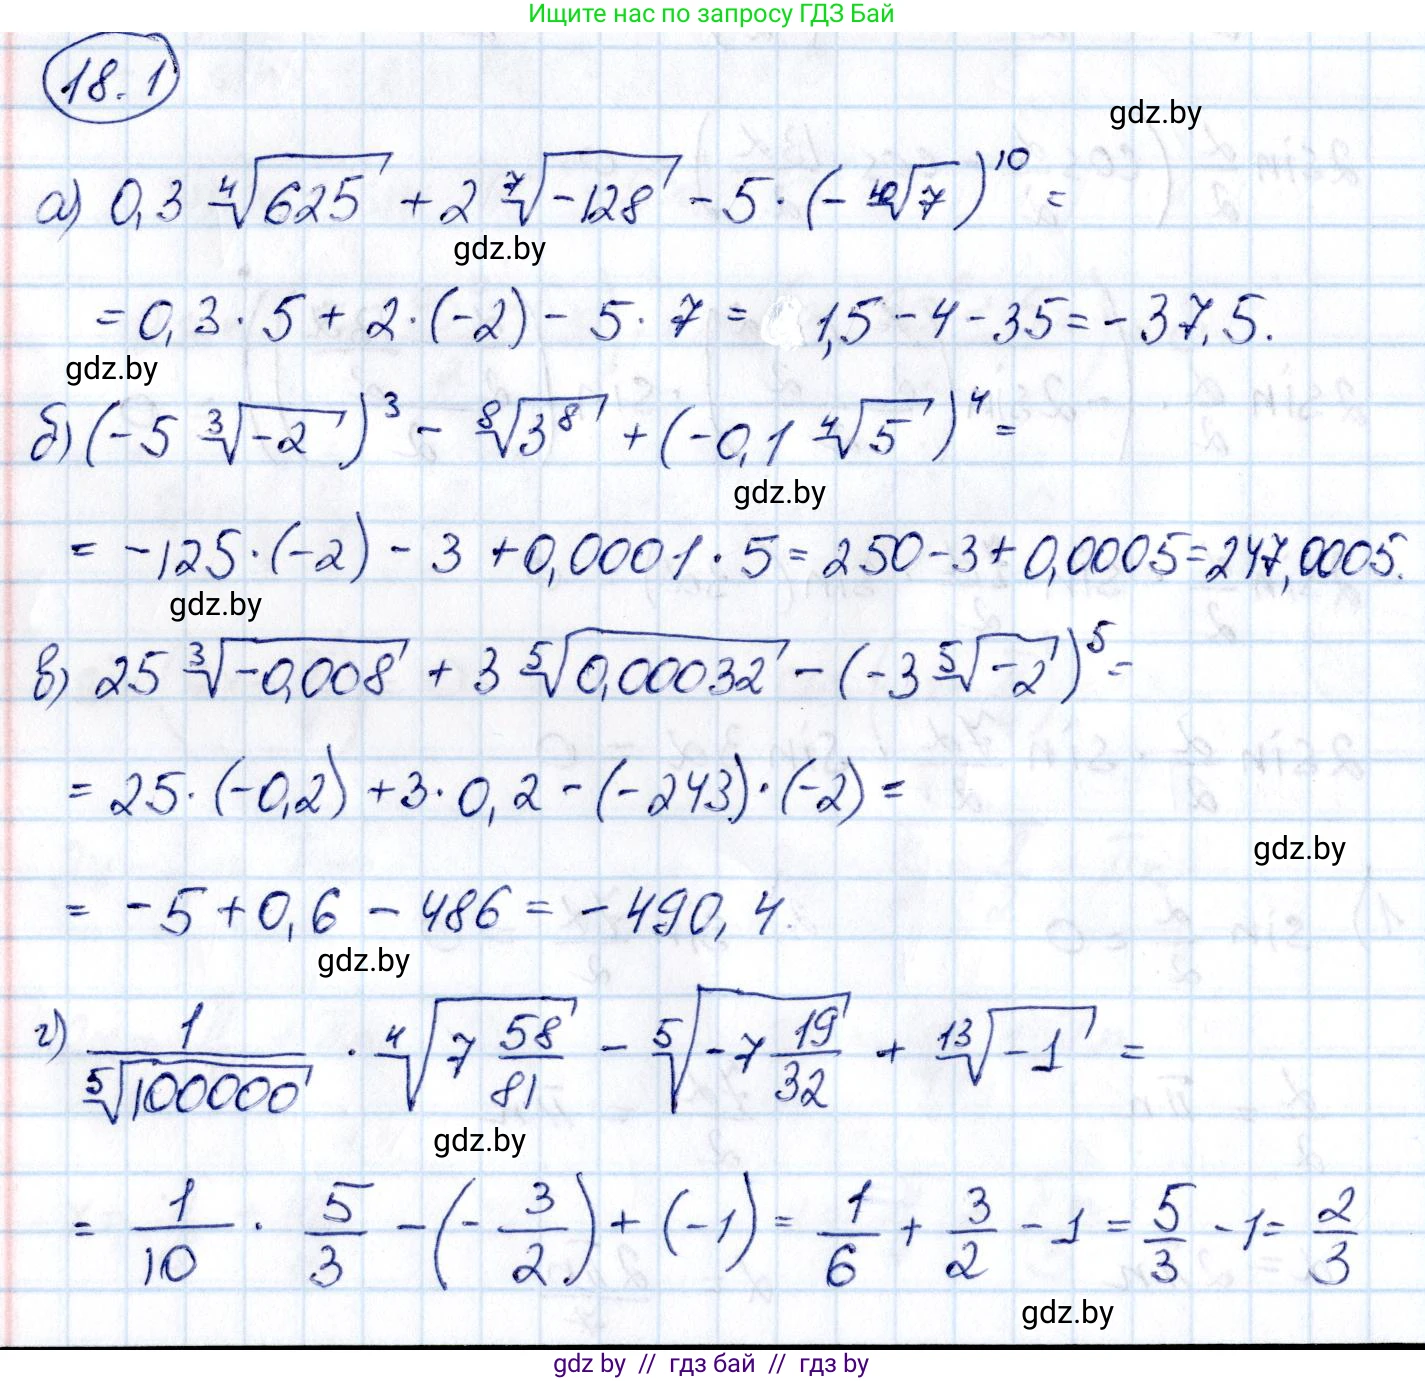 Ищите нас по запросу ГДЗ Бай
18.1
gdz.by
а) 0,3 ⁴√625 + 2 ⁷√-128 - 5·(- ¹⁰√7)¹⁰ =
gdz.by
= 0,3·5 + 2·(-2) - 5·7 = 1,5 - 4 - 35 = -37,5.
gdz.by
б) (-5 ³√-2)³ - ⁸√3⁸ + (-0,1 ⁴√5)⁴ =
gdz.by
= -125·(-2) - 3 + 0,0001·5 = 250 - 3 + 0,0005 = 247,0005.
gdz.by
в) 25 ³√-0,008 + 3 ⁵√0,00032 - (-3 ⁵√-2)⁵ =
= 25·(-0,2) + 3·0,2 - (-243)·(-2) =
gdz.by
= -5 + 0,6 - 486 = -490,4.
gdz.by
г) 1/⁵√100000 · ⁴√7 58/81 - ⁵√-7 19/32 + ¹³√-1 =
gdz.by
= 1/10 · 5/3 - (-3/2) + (-1) = 1/6 + 3/2 - 1 = 5/3 - 1 = 2/3
gdz.by
gdz by // гдз бай // гдз by